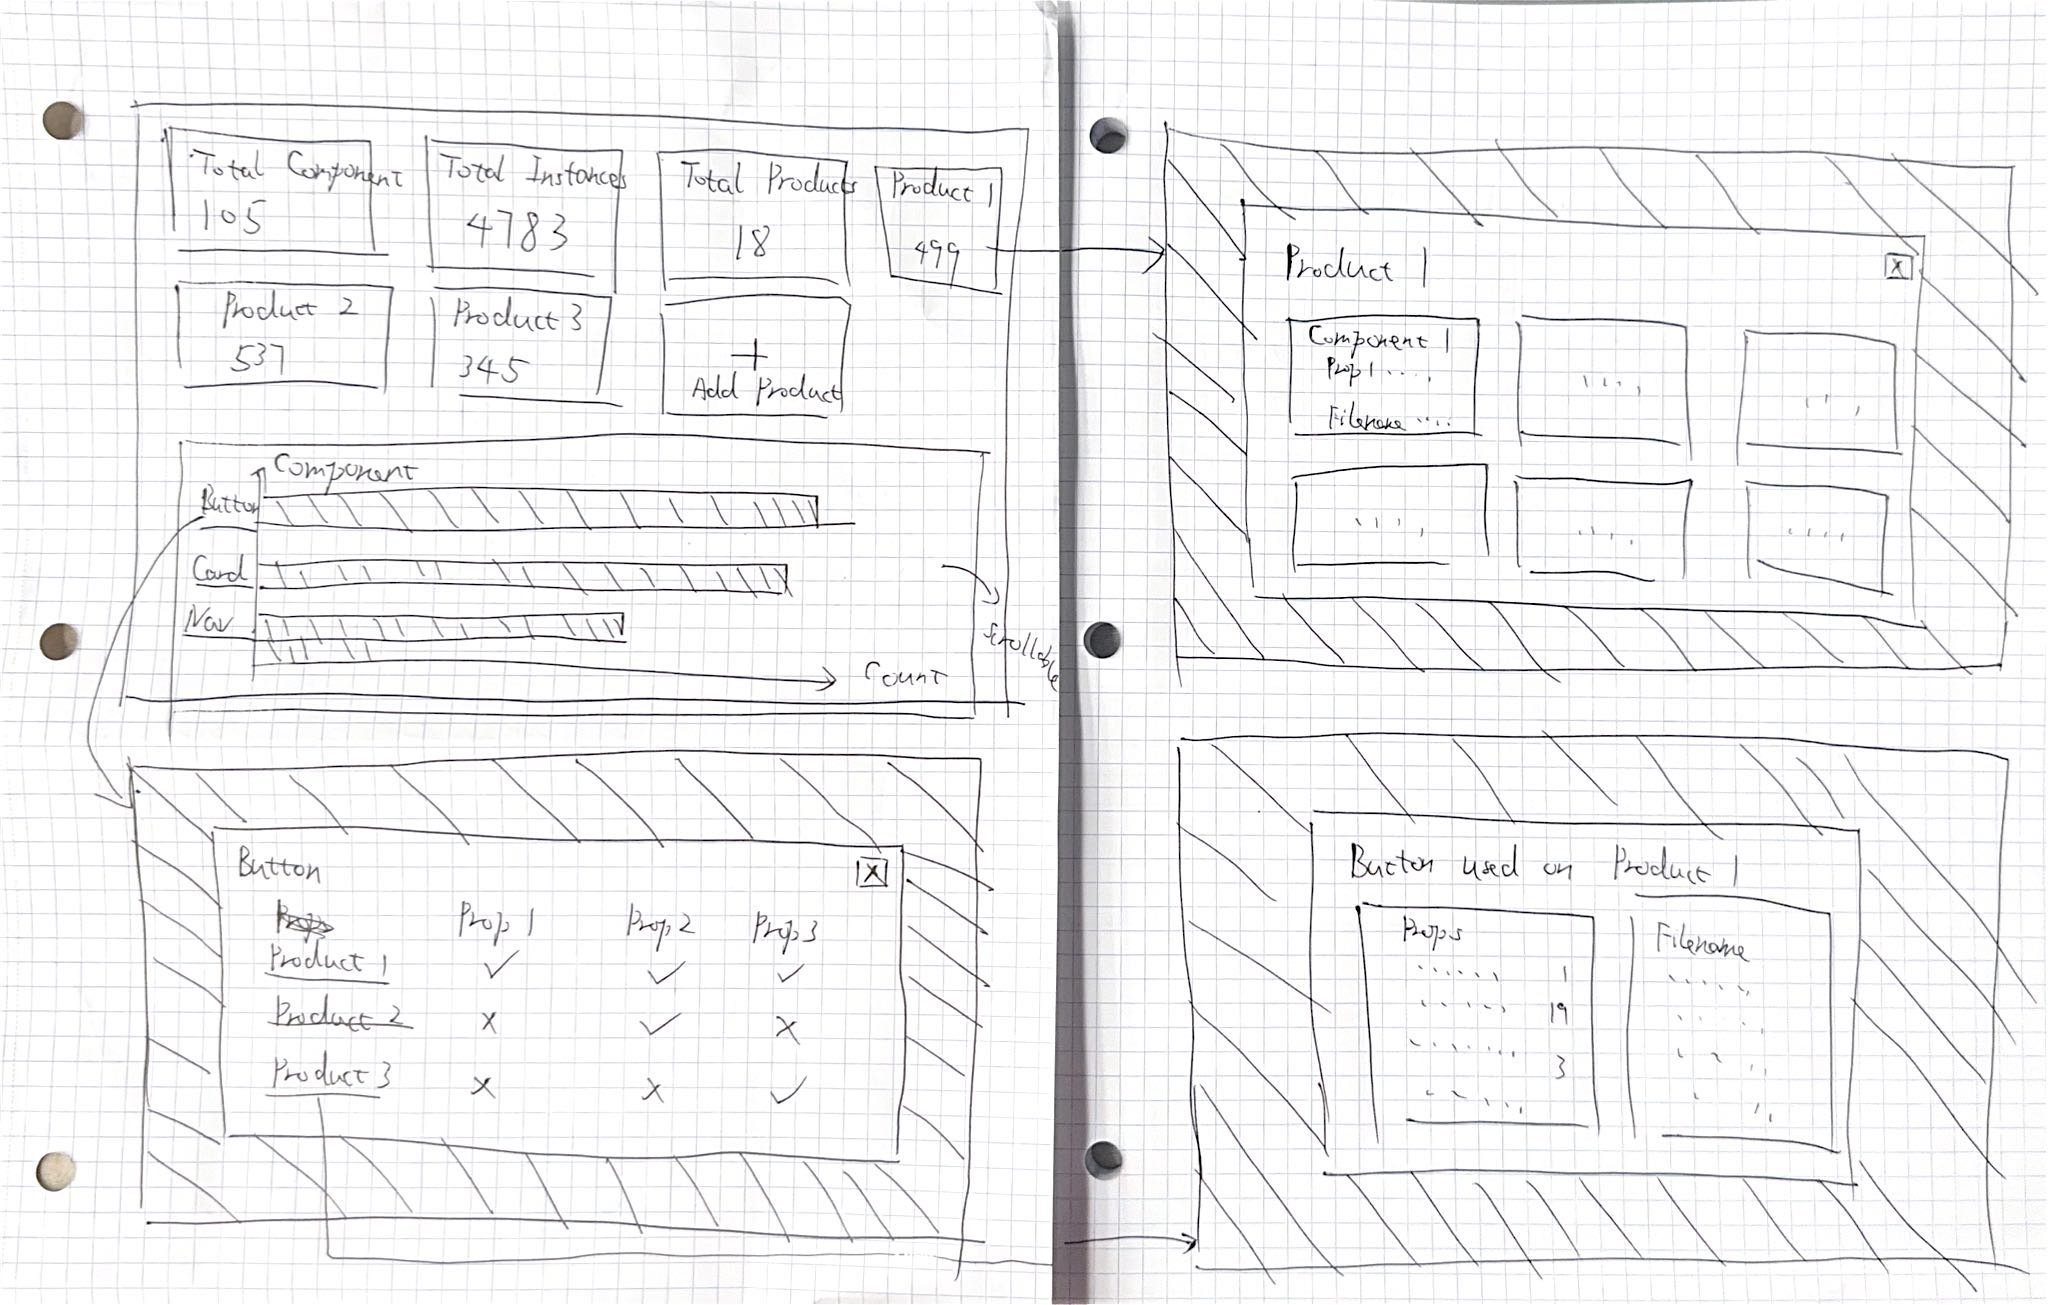 Total Component
105
Total Instances
4783
Total Products
18
Product 1
499
Product 2
537
Product 3
345
+
Add Product
Component
Button
Card
Nav
Count
Scrollable
Button
X
Prop 1 Prop 2 Prop 3
Product 1 ✓ ✓ ✓
Product 2 x ✓ x
Product 3 x x ✓
Product 1
X
Component 1
Prop 1 ....
Filename ....
Button used on Product 1
Props
1
19
3
Filename